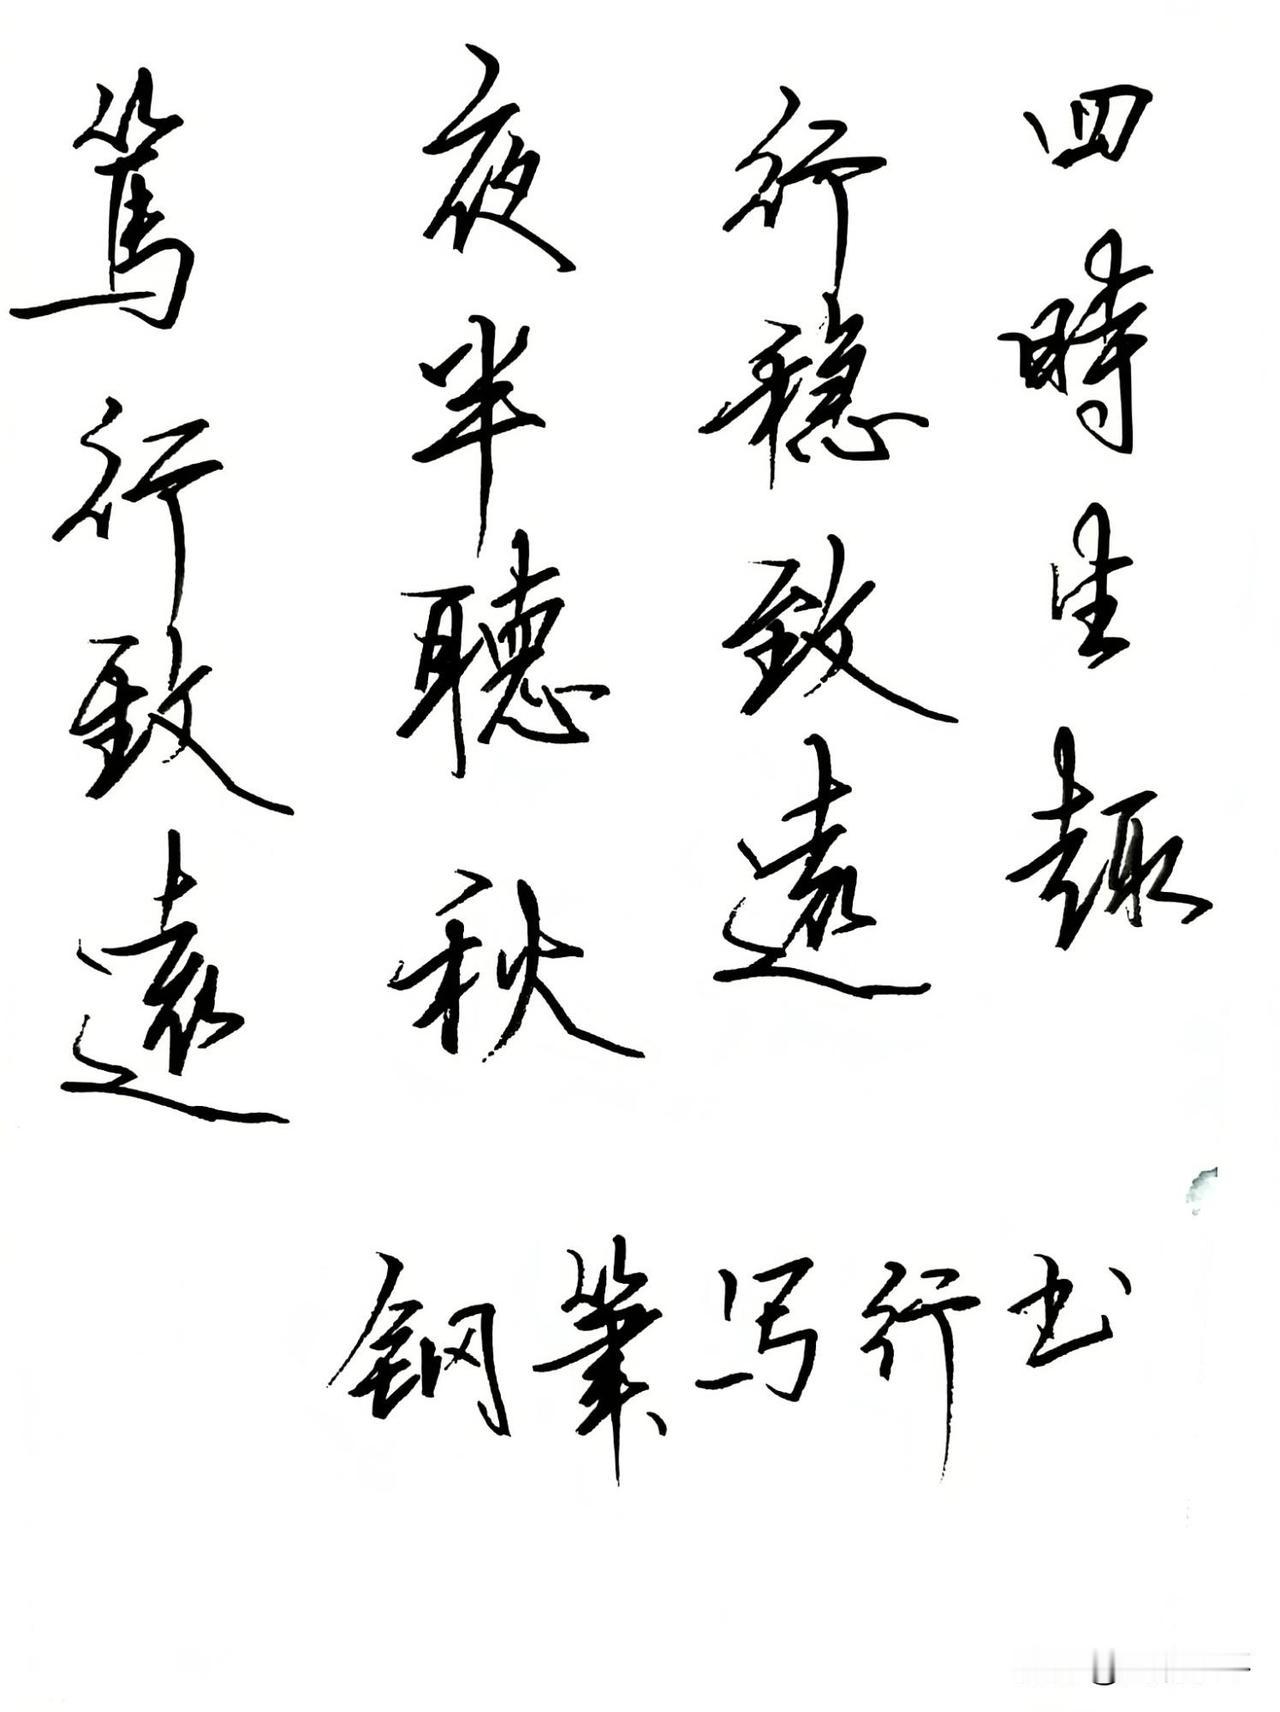 四時生趣
行稳致遠
夜半聽秋
篤行致遠
钢筆写行书